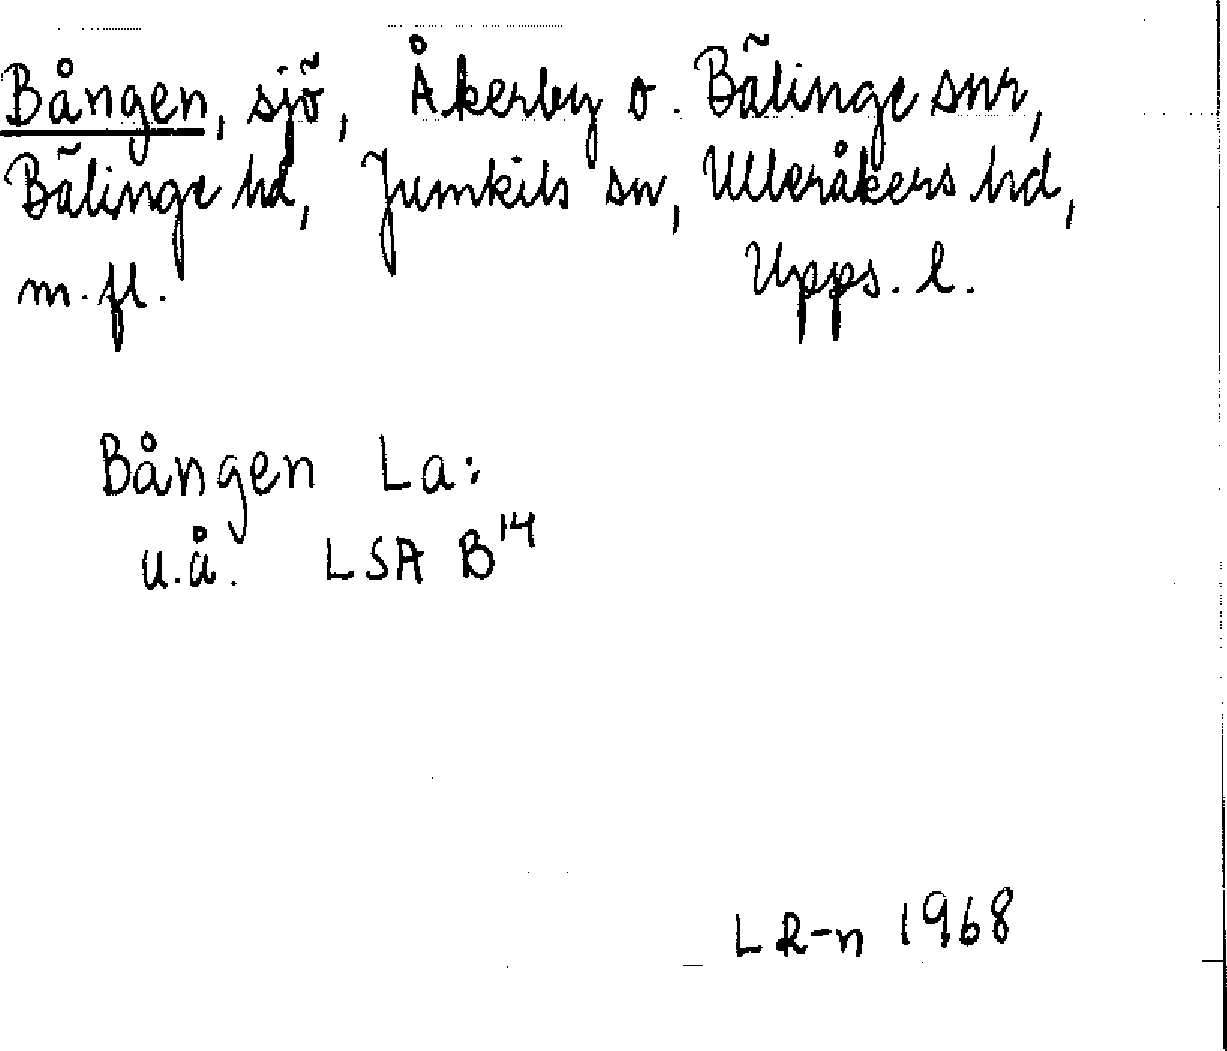 Bången, sjö, Åkerby o. Bälinge snr,
Bälinge hd, Jumkils sn, Ulleråkers hd,
m. fl. Upps. l.
Bången La:
u.å. LSA B14
LR-n 1968